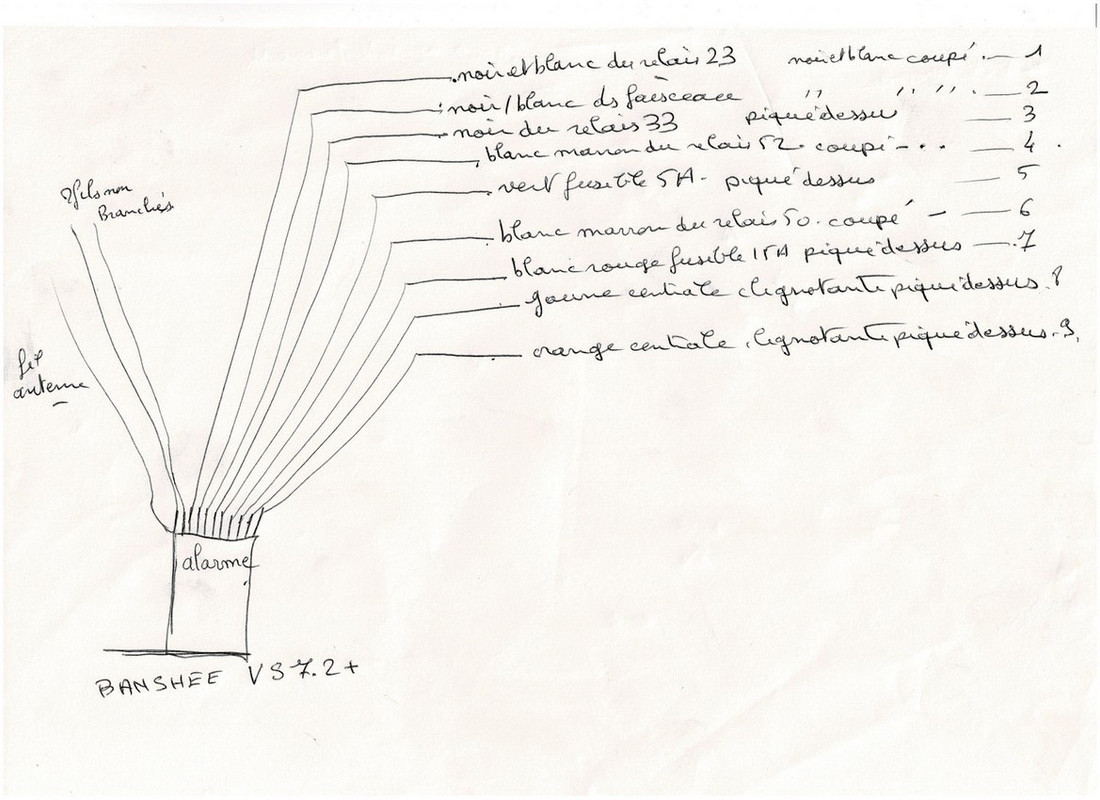 noir et blanc du relais 23 noir et blanc coupé. — 1
noir/blanc ds faisceau " " " " . — 2
noir du relais 33 piqué dessus — 3
blanc marron du relais 52. coupé - . . — 4 .
vert fusible 5A - piqué dessus — 5
blanc marron du relais 50. coupé — — 6
blanc rouge fusible 15A piqué dessus — .7
jaune centrale clignotante piqué dessus. 8
orange centrale clignotante piqué dessus. 9.
2 fils non
Branchés
fil
antenne
alarme
BANSHEE VS 7.2+